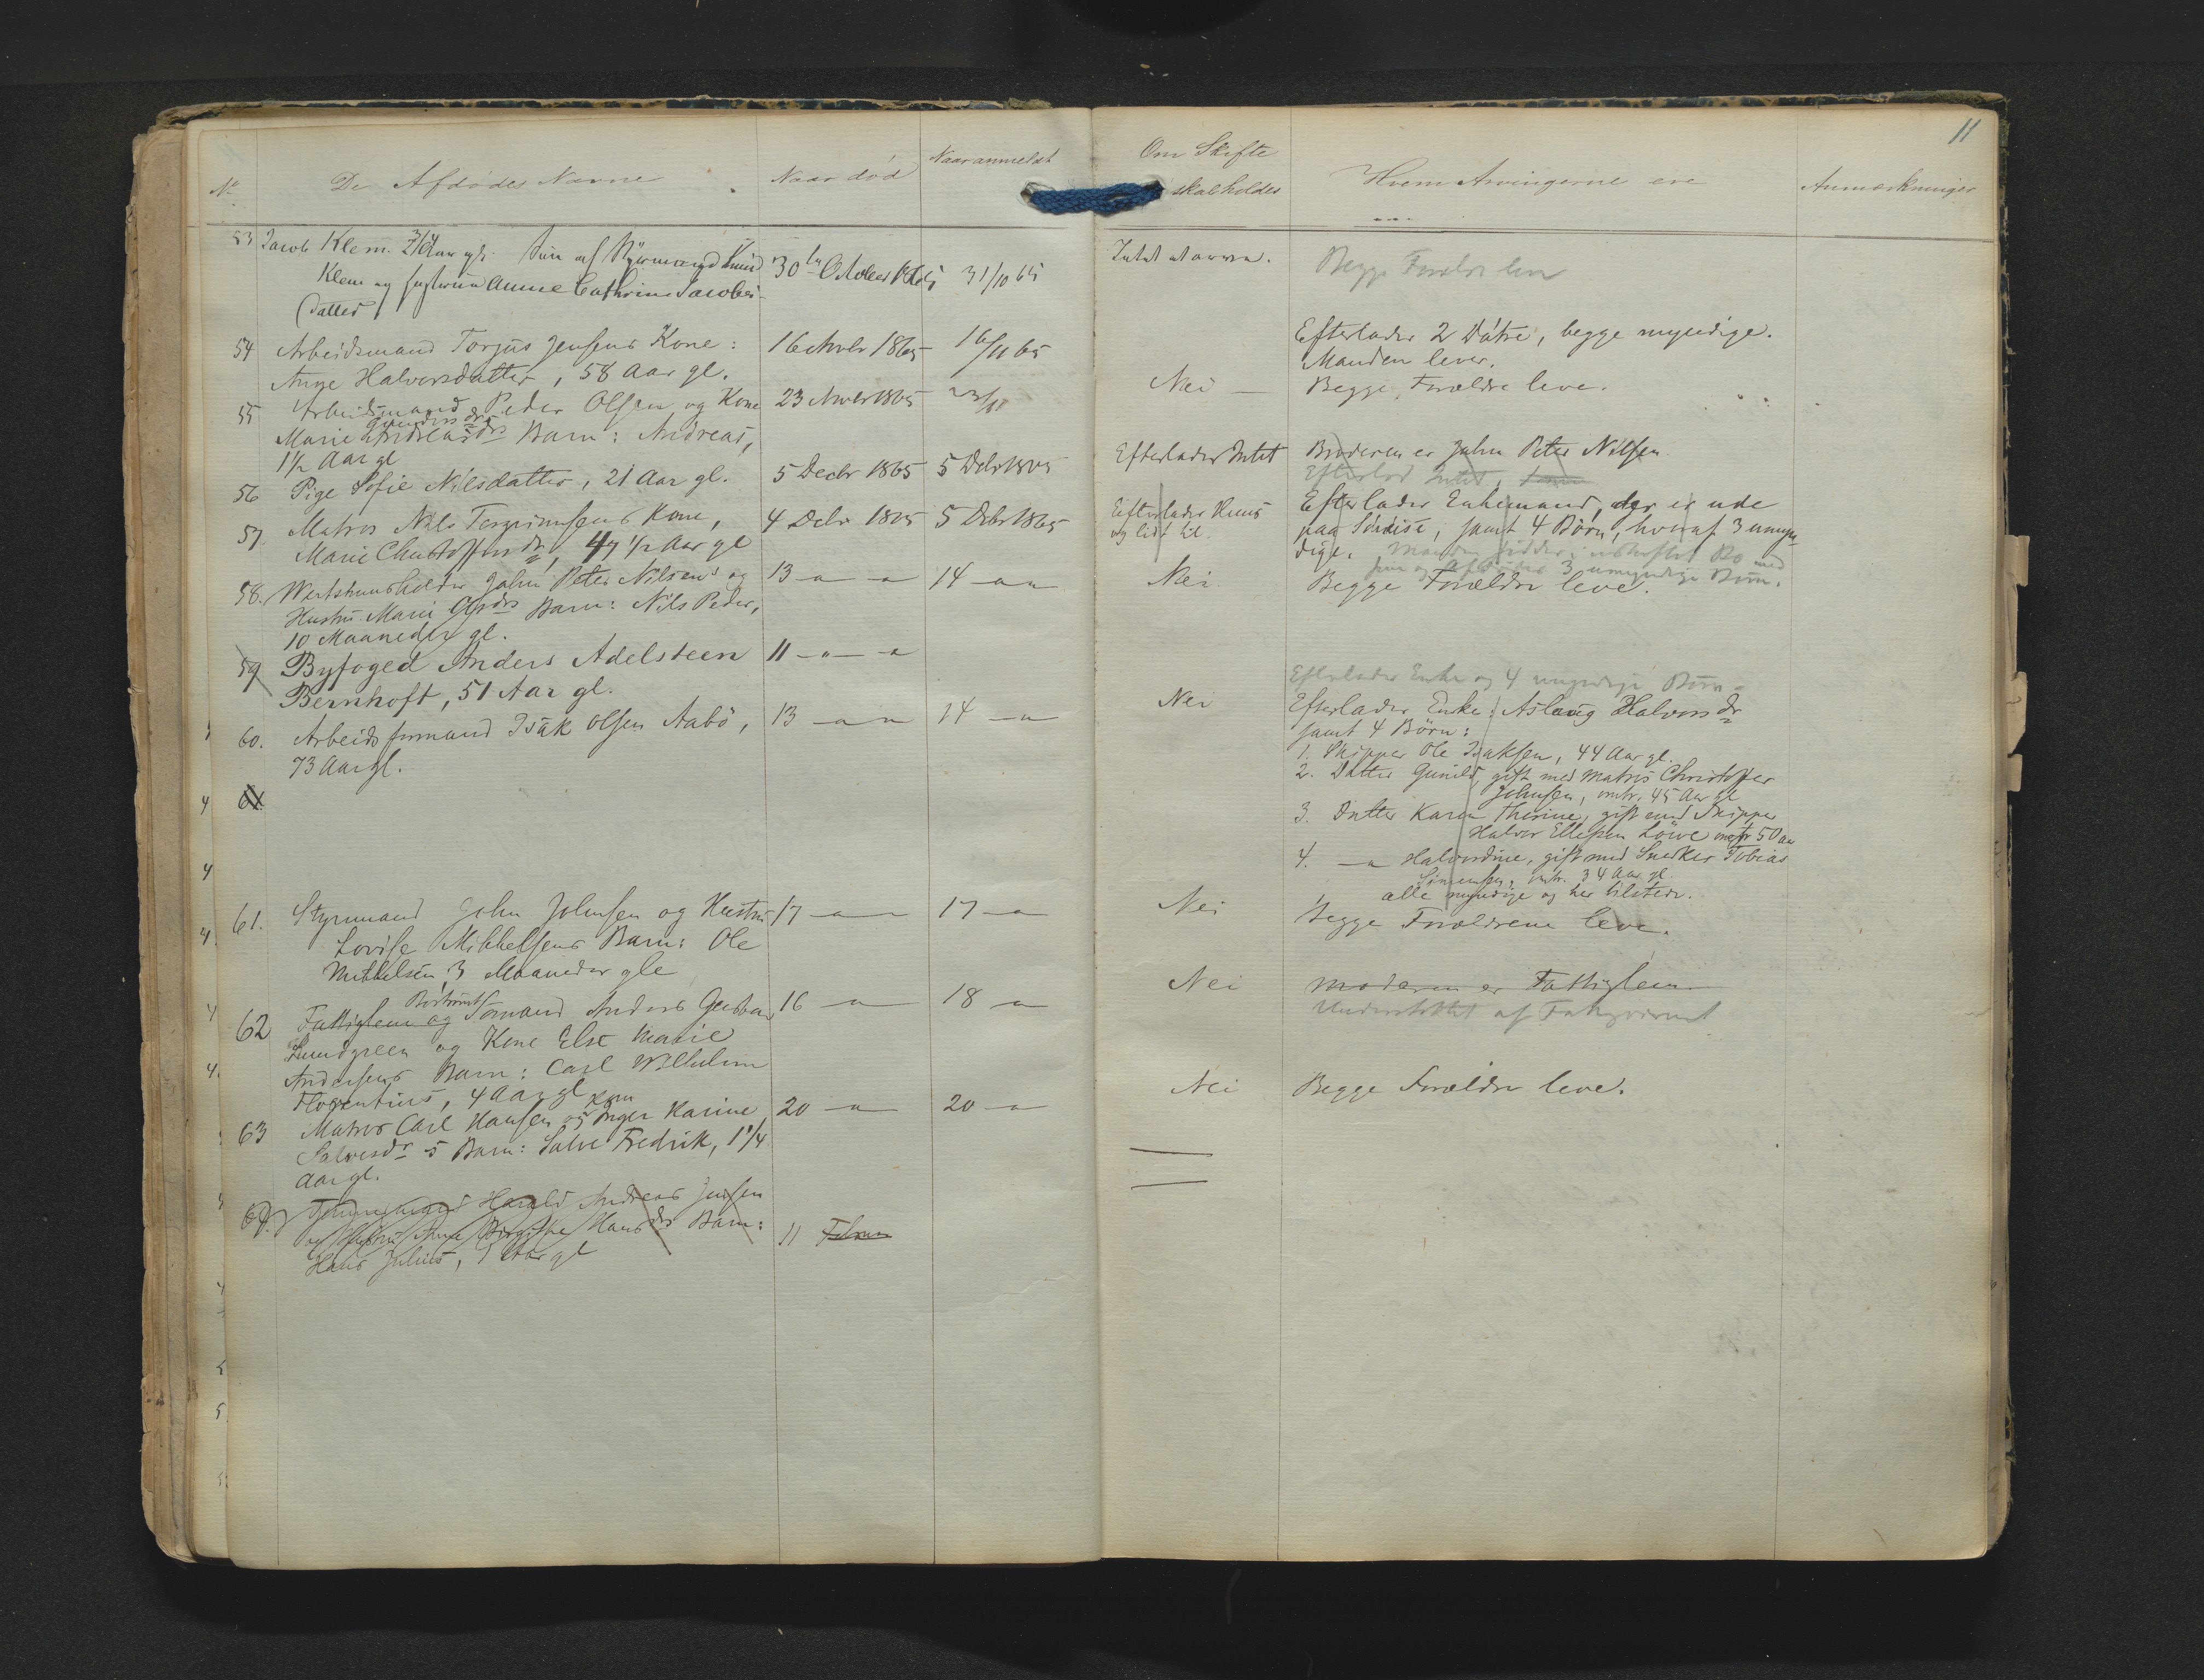 11
No
De Afdødes Navne
Naar død
Naar anmeldt
Om Skifte
skal holdes
Hvem Arvingerne ere
Anmærkninger
53 Jacob Klem. 2 3/4 Aar gl. Søn af Styrmand Knud
Klem og Hustrue Anne Cathrine Jacobs-
datter
30te October 1865
31/10 65
Intet at arve.
Begge Forældre leve
54 Arbeidsmand Torjus Jensens Kone:
Anne Halvorsdatter, 58 Aar gl.
16 Novbr 1865
16/11 65
Efterlader 2 Døtre, begge myndige.
Manden lever.
55 Arbeidsmand Peder Olsen og Kone
Marie Andreasdrs Barn: Andreas,
1 1/2 Aar gl
23 Novbr 1865
23/11
Nei —
Begge Forældre leve.
56 Pige Sofie Nilsdatter, 21 Aar gl.
5 Decbr 1865
5 Debr 1865
Efterlader Intet
Broderen er John Peter Nilsen
Efterlod Intet,
57 Matros Nils Tergrimsens Kone,
Marie Christoffersdr, 47 1/2 Aar gl
4 Debr 1865
5 Debr 1865
Efterlader Huus
og lidt til.
Efterlader Enkemand, der er ude
paa Søreise, samt 4 Børn, hvoraf 3 umyn-
dige. Manden sidder i uskiftet Bo med
sine og Afdødes 3 umyndige Børn.
58. Vertshuusholder John Peter Nilsens og
Hustru Marie Barn: Nils Peder,
10 Maaneder gl.
13 — " — "
14 — " "
Nei
Begge Forældre leve.
59 Byfoged Anders Adelsteen
Bernhoft, 51 Aar gl.
11 — " — "
Efterlader Enke og 4 umyndige Børn —
60. Arbeidsformand Isak Olsen Aabö,
73 Aar gl.
13 — " "
14 — "
Nei
Efterlader Enke: Aslaug Halvorsdr
samt 4 Börn:
1. Skipper Ole Isaksen, 44 Aar gl.
2. Datter Gunild, gift med Matros Christoffer
Johnsen, omtr. 45 Aar gl
3. Datter Karen Therine, gift med Skipper
Halvor Ellefsen Löwe omtr 50 aar
4. — " Halvordine, gift med Snedker Tobias
Simensen, omtr. 34 Aar gl.
alle myndige og her tilstede.
61
61. Styrmand John Johnsen og Hustru
Lovise Mikkelsens Barn: Ole
Mikkelsen, 3 Maaneder gle
17 — "
17 — "
Nei
Begge Forældrene leve.
62 Fattiglem og Sømand Anders Gustav
Lundgreen og Kone Else Marie
Andersens Barn: Carl Wilhelm
Florentius, 4 Aar gl
16 — "
18 — "
Nei
Moderen er Fattiglem
Understøttet af Fattigvæsenet
63 Matros Carl Hansen og Kone Inger Karine
Salvesdrs Barn: Salve Fredrik, 1 1/4
Aar gl.
20 — "
20 — "
Nei
Begge Forældre leve.
64. Tømmermand Harald Andreas Jensen
og Hustru Anne Birgithe Hansdrs Barn:
Hans Julius, 1 Aar gl
11 Febru